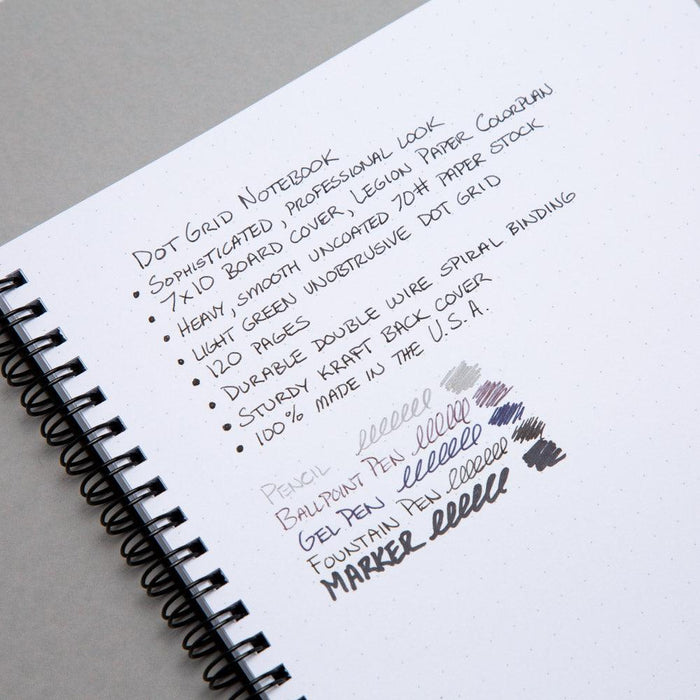 DOT GRID NOTEBOOK
• SOPHISTICATED, PROFESSIONAL LOOK
• 7x10 BOARD COVER, LEGION PAPER COLORPLAN
• HEAVY, SMOOTH UNCOATED 70# PAPER STOCK
• LIGHT GREEN UNOBTRUSIVE DOT GRID
• 120 PAGES
• DURABLE DOUBLE WIRE SPIRAL BINDING
• STURDY KRAFT BACK COVER
• 100% MADE IN THE U.S.A.
PENCIL
BALLPOINT PEN
GEL PEN
FOUNTAIN PEN
MARKER